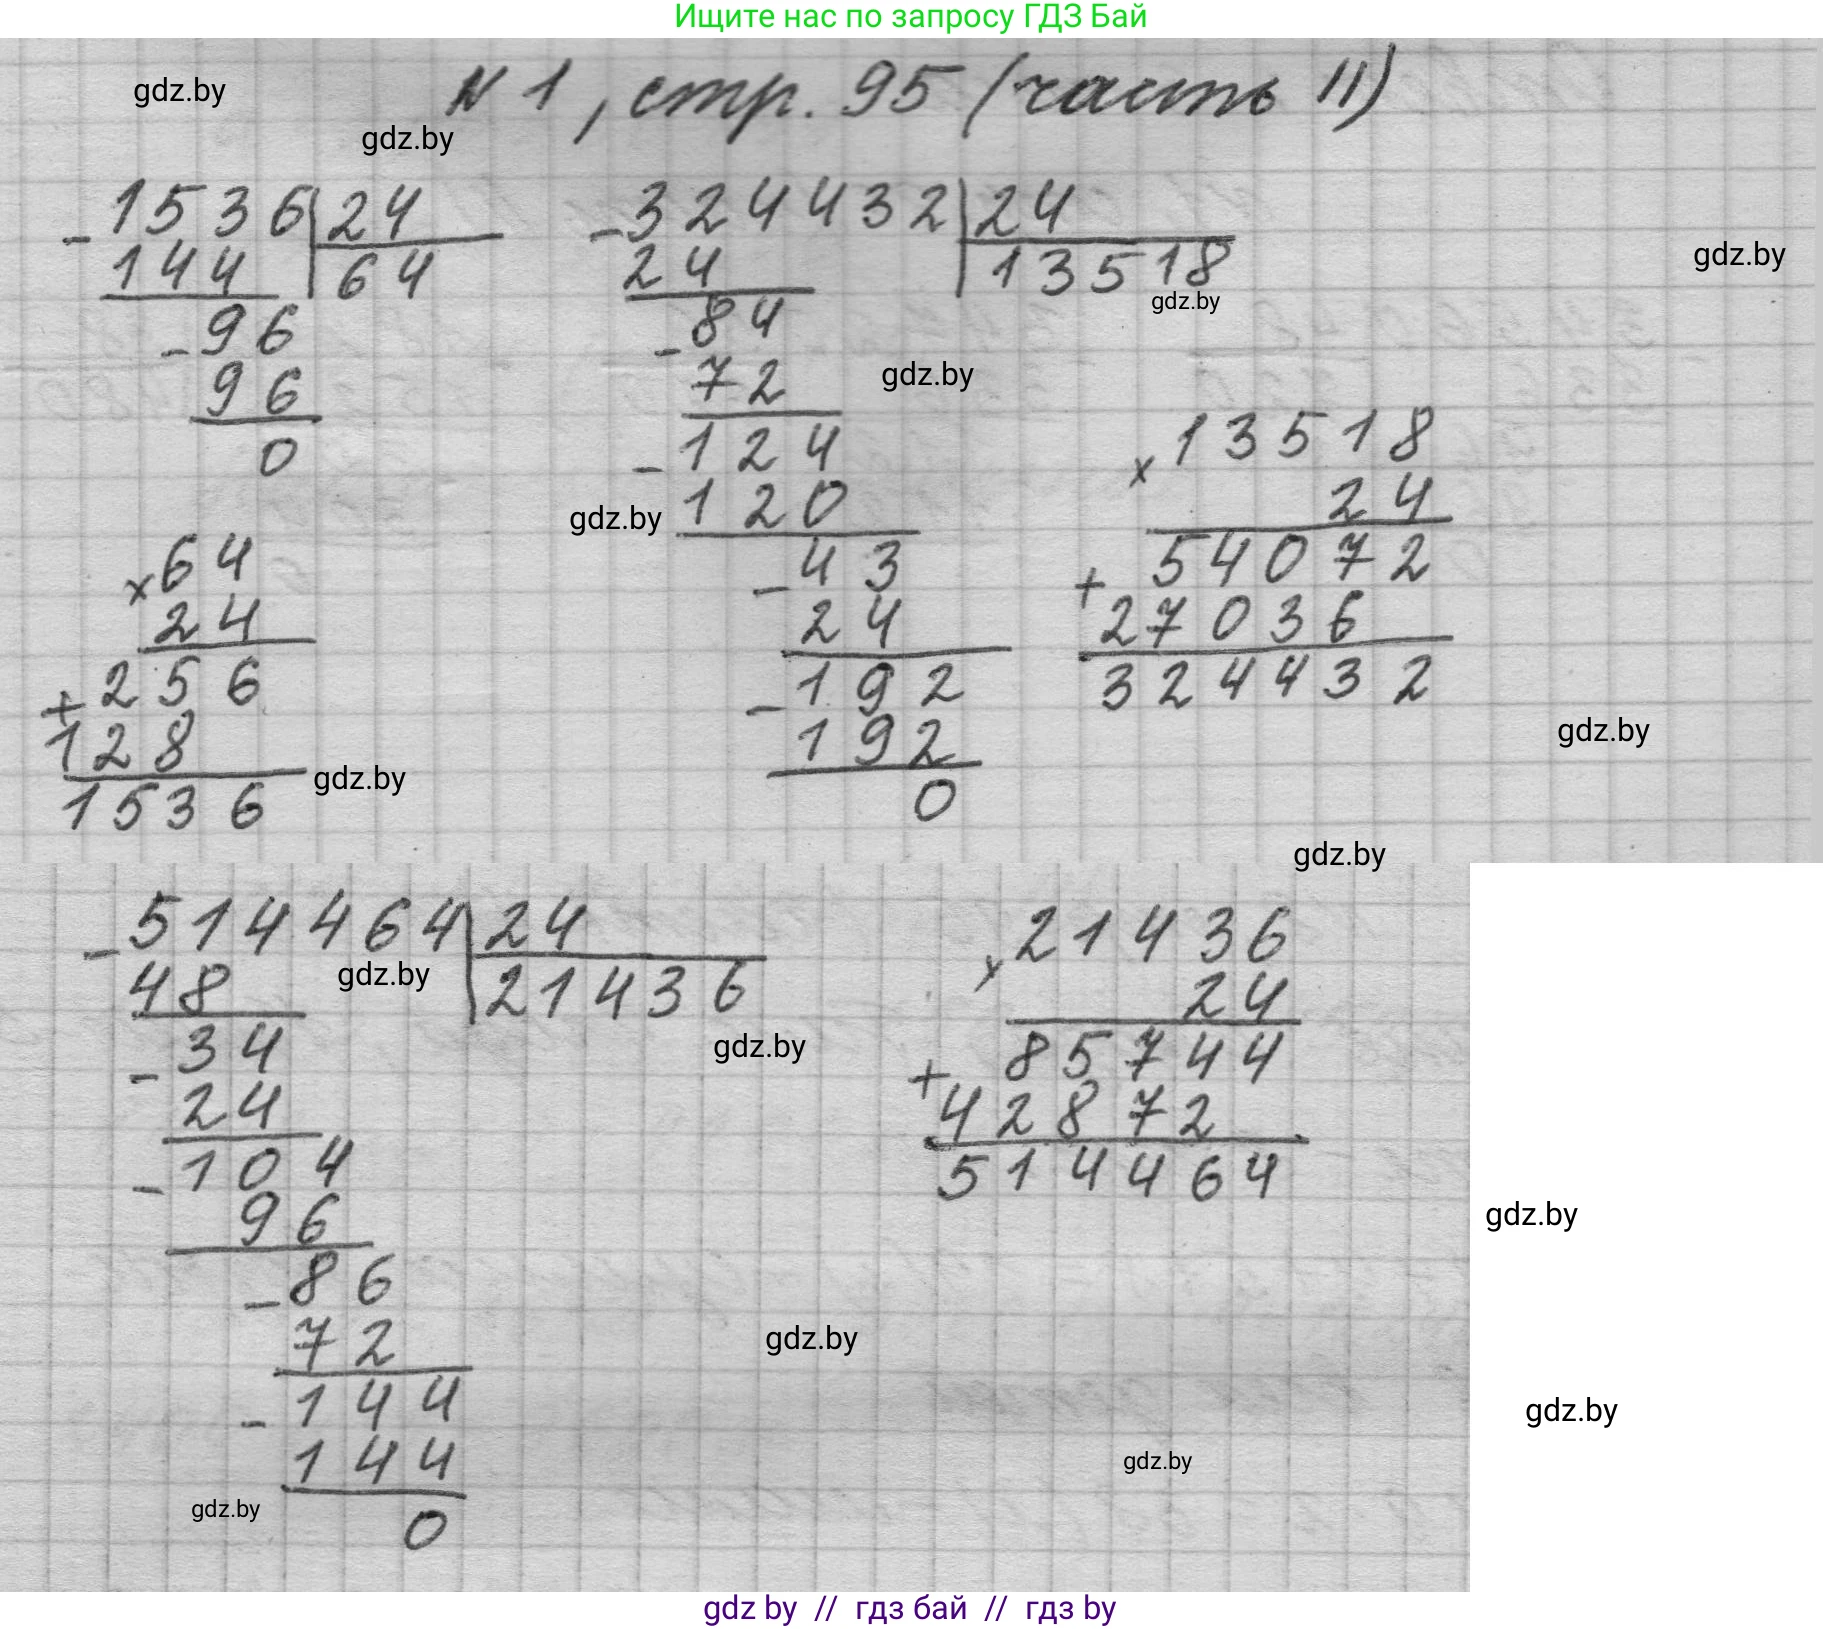 Ищите нас по запросу ГДЗ Бай
gdz.by
N 1, стр. 95 (часть II)
gdz.by
- 1536 | 24
144 | 64
- 96
96
0
x 64
24
+ 256
128
1536
gdz.by
- 324432 | 24
24 | 13518
gdz.by
- 84
72
gdz.by
- 124
120
gdz.by
- 43
24
- 192
192
0
gdz.by
x 13518
24
+ 54072
27036
324432
gdz.by
gdz.by
- 514464 | 24
48 | 21436
gdz.by
gdz.by
- 34
24
- 104
96
- 86
72
- 144
144
0
gdz.by
x 21436
24
+ 85744
42872
514464
gdz.by
gdz.by
gdz.by
gdz.by
gdz by // гдз бай // гдз by